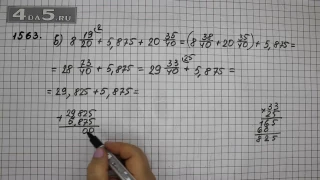 ADSKIY.RU
1563. б) 8 19/20 (2 + 5,875 + 20 35/40 = (8 38/40 + 20 35/40) + 5,875 =
= 28 73/40 + 5,875 = 29 33/40 (25 + 5,875 =
= 29,825 + 5,875 =
+ 29,825
5,875
00
× 33
25
165
66
825